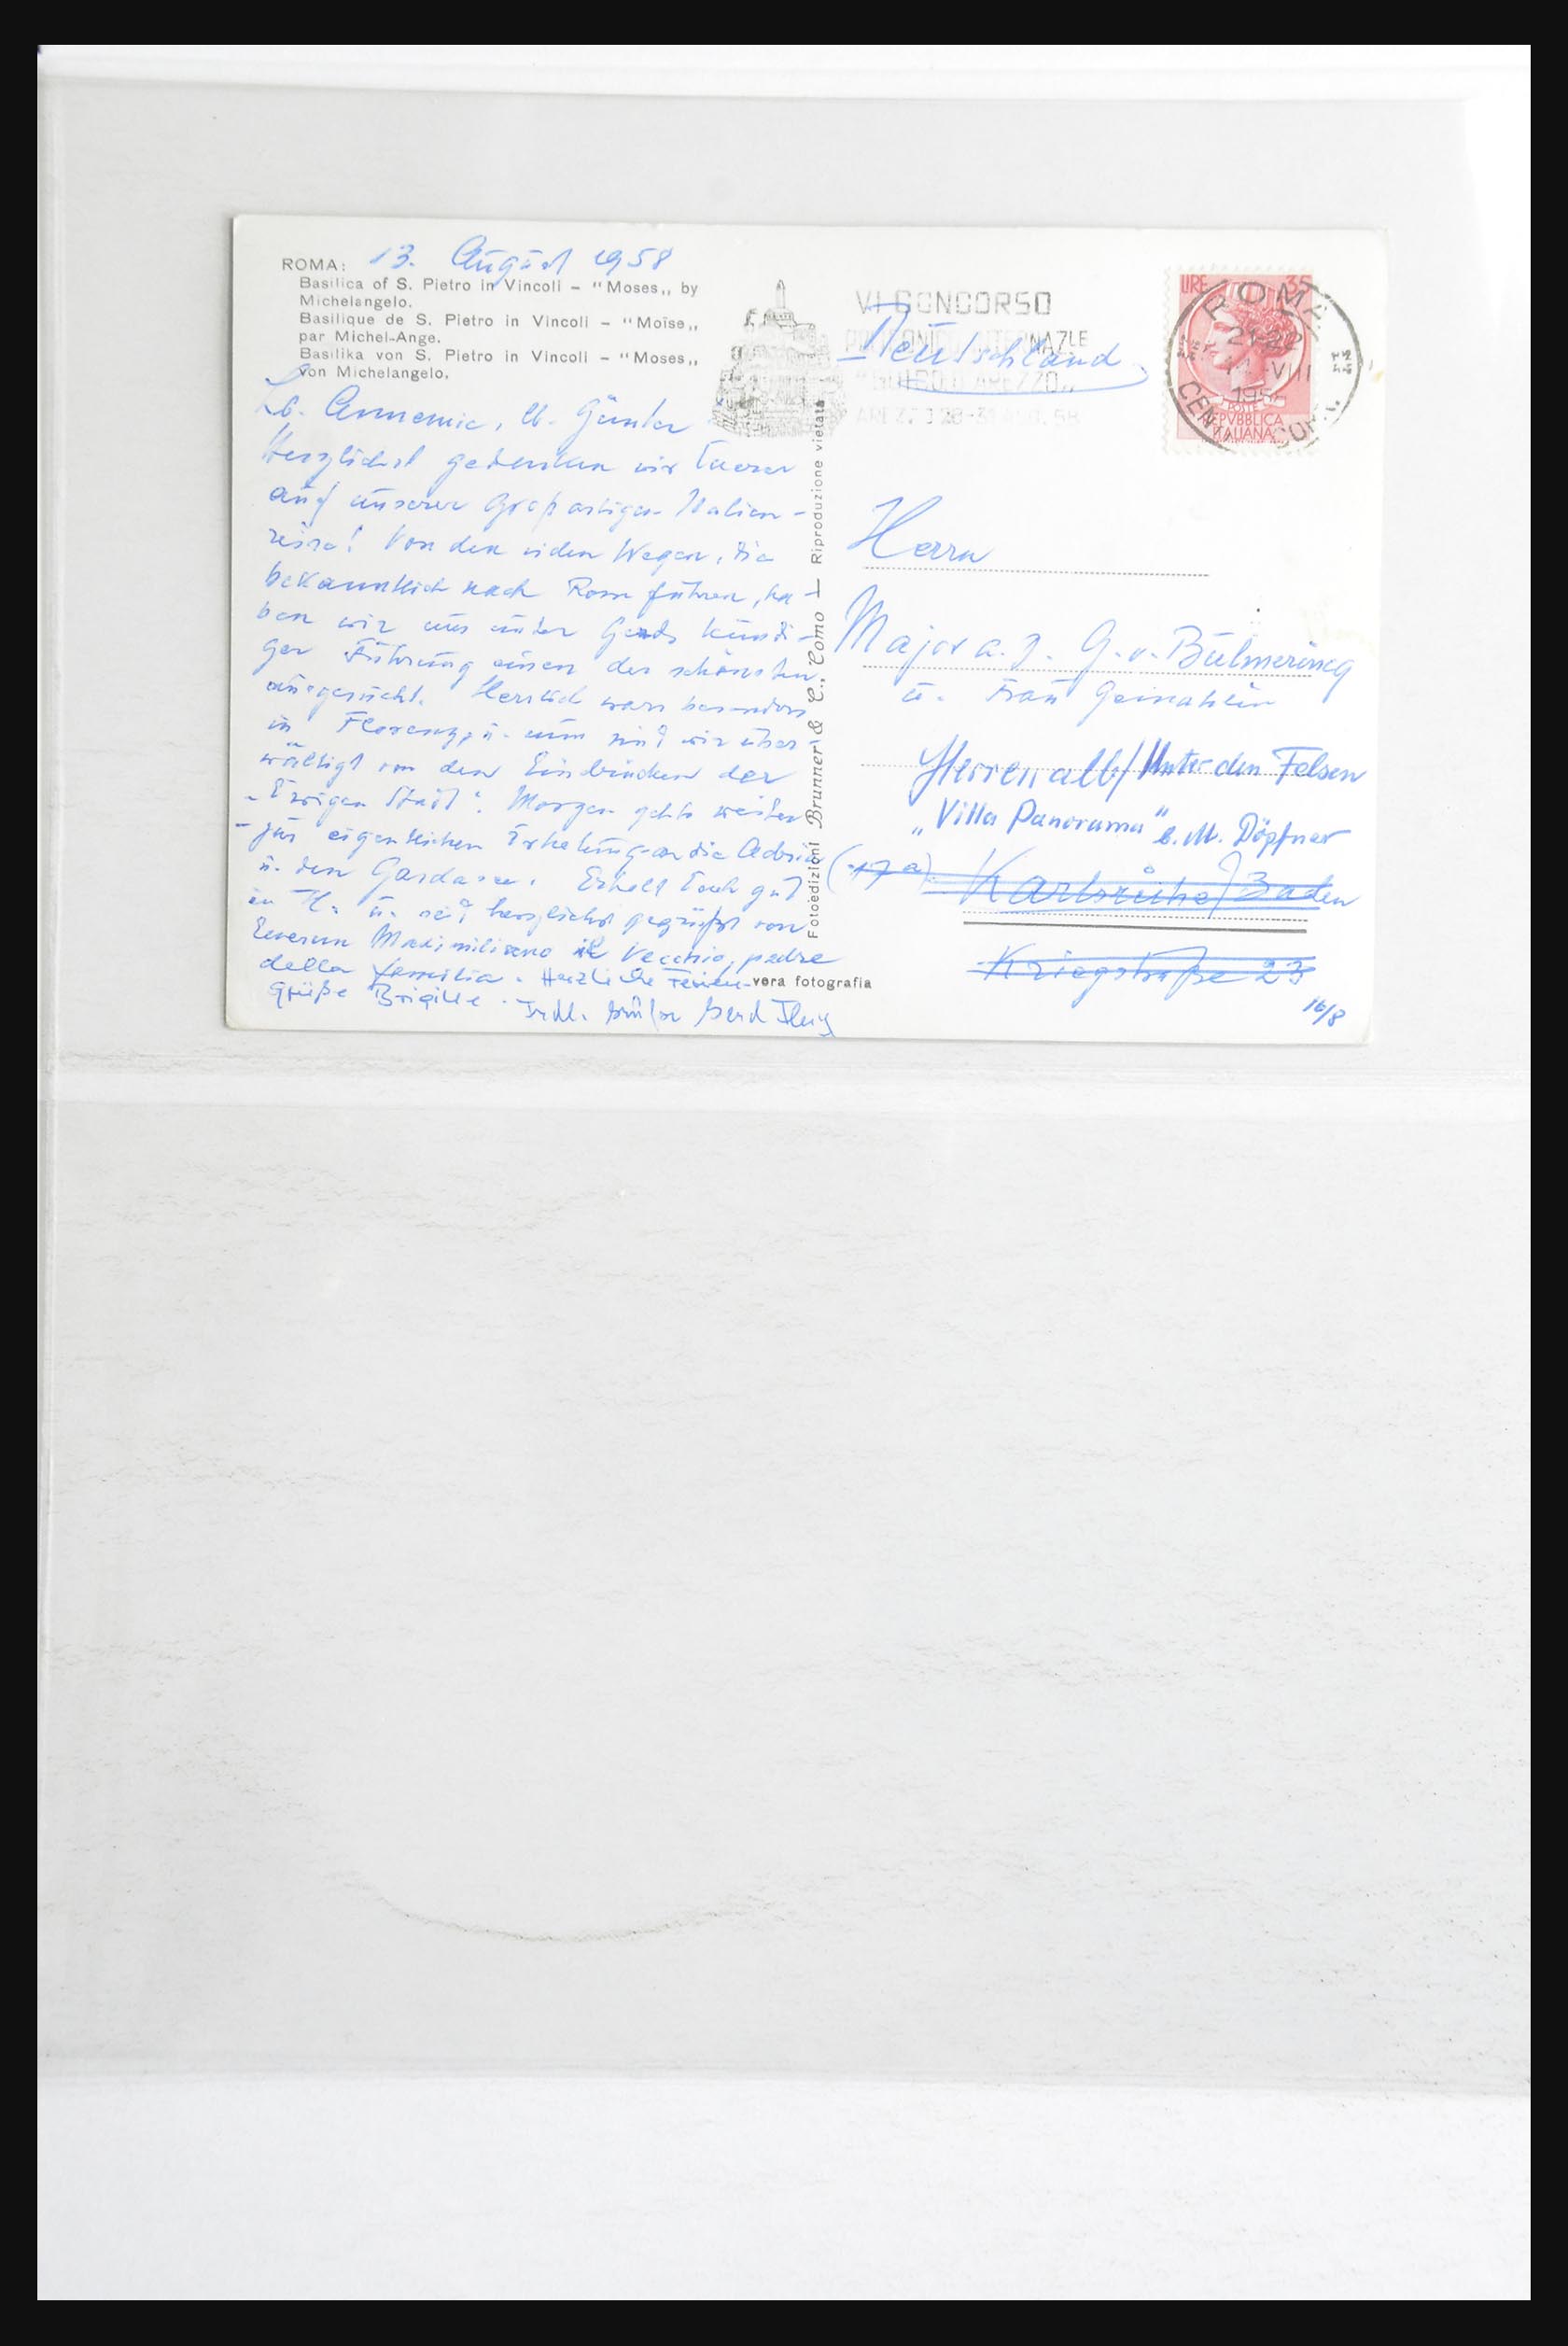 ROMA: 13. August 1958
Basilica of S. Pietro in Vincoli – “Moses„ by
Michelangelo.
Basilique de S. Pietro in Vincoli – “Moïse„
par Michel-Ange.
Basilika von S. Pietro in Vincoli – “Moses„
von Michelangelo.
Lb. Annemie, lb. Günter
Herzlichst gedenken wir Euerer
auf unserer großartigen Italien-
reise! Von den vielen Wegen, die
bekanntlich nach Rom führen, ha-
ben wir uns unter Gerds kundi-
ger Führung einen der schönsten
ausgesucht. Herrlich wars besonders
in Florenz, u. nun sind wir über-
wältigt von den Eindrücken der
„Ewigen Stadt“. Morgen gehts weiter
- zur eigentlichen Erholung - an die Adria
u. den Gardasee. Erholt Euch gut
in H. u. seid herzlichst gegrüßt von
Euerem Maximiliano il Vecchio, padre
della familia. Herzliche Ferien-
Grüße Brigitte. Grüße Gerd
vera fotografia
Fotoedizioni Brunner & C., Como — Riproduzione vietata
VI CONCORSO
POLIFONICO INTERNAZLE
“GUIDO D'AREZZO„
AREZZO 28-31 AGO. 58
Deutschland
LIRE 35
ROMA
21-22
14 VIII
1958
CENTRO CORR.
POSTE
REPVBBLICA
ITALIANA
Herrn
Major a. D. G. v. Bulmerincq
u. Frau Gemahlin
Herrenalb/Unter den Felsen
„Villa Panorama“ b. M. Döpfner
(17a) Karlsruhe/Baden
Kriegstraße 23
16/8